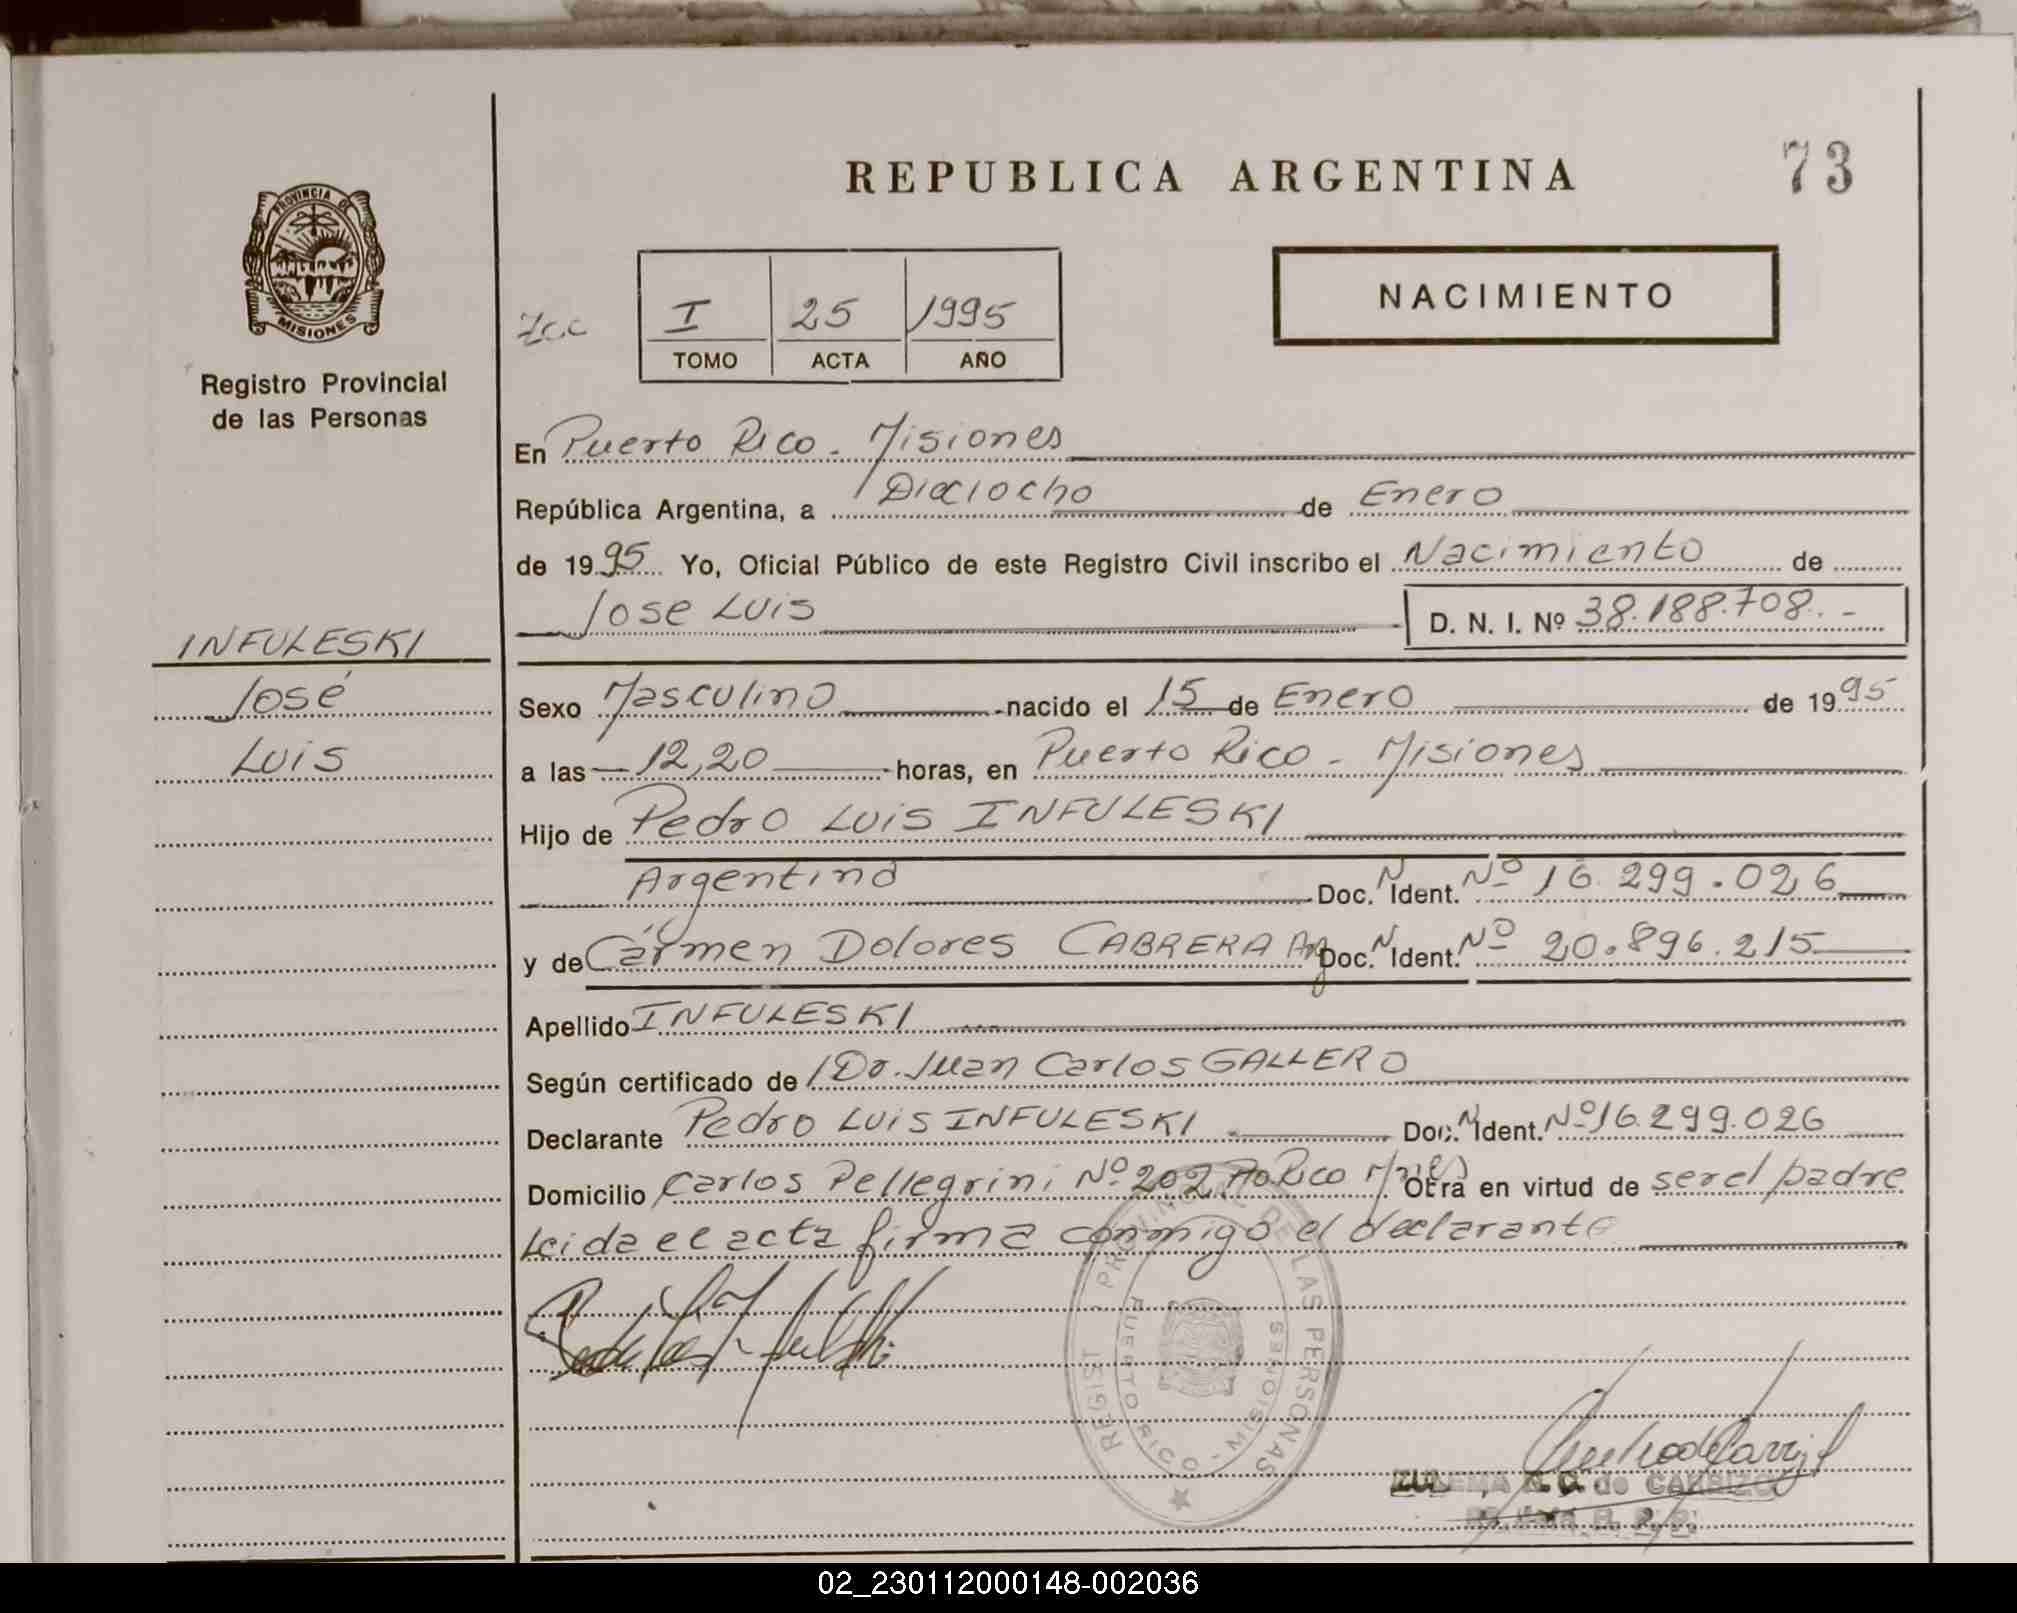 REPUBLICA ARGENTINA
73
PROVINCIA DE
MISIONES
Registro Provincial
de las Personas
I 25 1995
TOMO ACTA AÑO
NACIMIENTO
En Puerto Rico - Misiones
República Argentina, a Dieciocho de Enero
de 1995 Yo, Oficial Público de este Registro Civil inscribo el Nacimiento de
Jose Luis D. N. I. Nº 38.188.708.-
INFULESKI
José
Luis
Sexo Masculino nacido el 15 de Enero de 1995
a las 12,20 horas, en Puerto Rico - Misiones
Hijo de Pedro Luis INFULESKI
Argentino Doc. N. Ident. Nº 16.299.026
y de Cármen Dolores CABRERA Arg Doc. N. Ident. Nº 20.896.215
Apellido INFULESKI
Según certificado de Dr. Juan Carlos GALLERO
Declarante Pedro Luis INFULESKI Doc. N. Ident. Nº 16.299.026
Domicilio Carlos Pellegrini Nº 202 Pto Rico Mnes Otra en virtud de ser el padre
Leida el acta firma conmigo el declarante
REGIST. PROVINCIAL DE LAS PERSONAS
PUERTO RICO - MISIONES
ZULEMA de CARRIZO
02_230112000148-002036